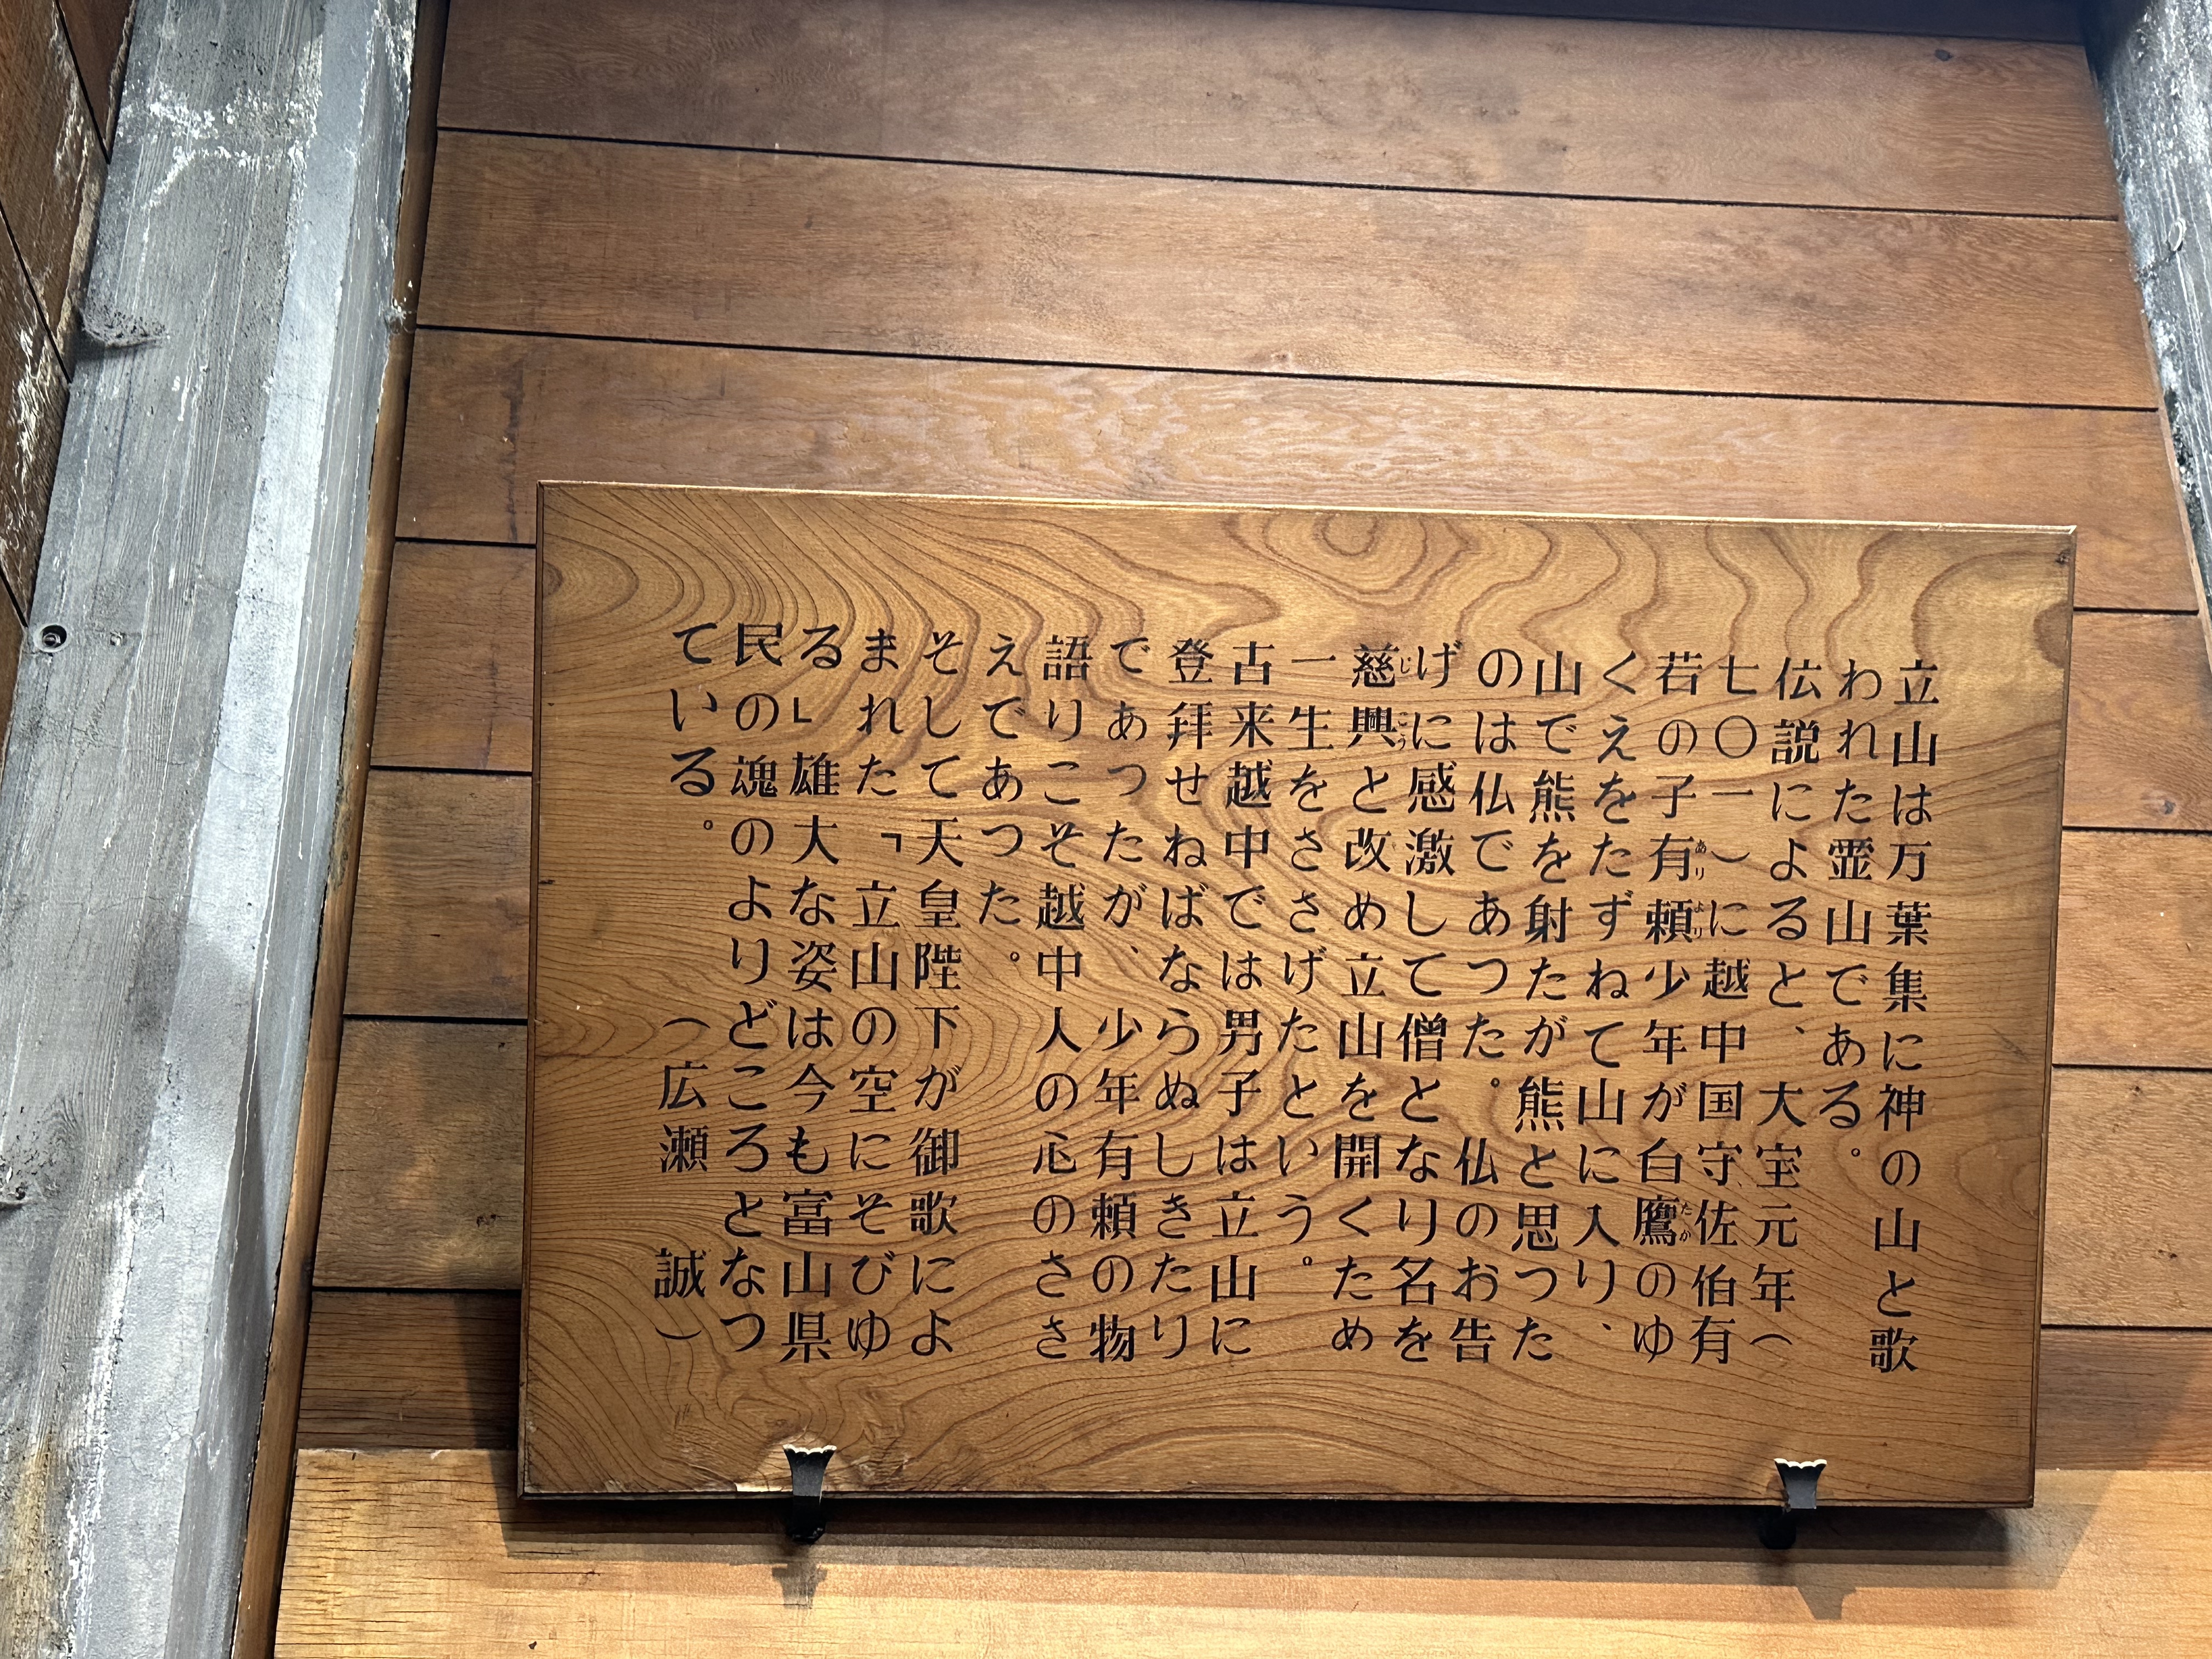 立山は万葉集に神の山と歌
われた霊山である。
伝説によると、大宝元年（
七〇一）に越中国守佐伯有
若の子有頼少年が白鷹のゆ
くえをたずねて山に入り、
山で熊を射たが熊と思つた
のは仏であつた。仏のお告
げに感激して僧となり名を
慈興と改め立山を開くため
一生をささげたという。
古来越中では男子は立山に
登拝せねばならぬしきたり
であつたが、少年有頼の物
語りこそ越中人の心のささ
えであつた。
そして天皇陛下が御歌によ
まれた「立山の空にそびゆ
る」雄大な姿は今も富山県
民の魂のよりどころとなつ
ている。（広瀬　誠）